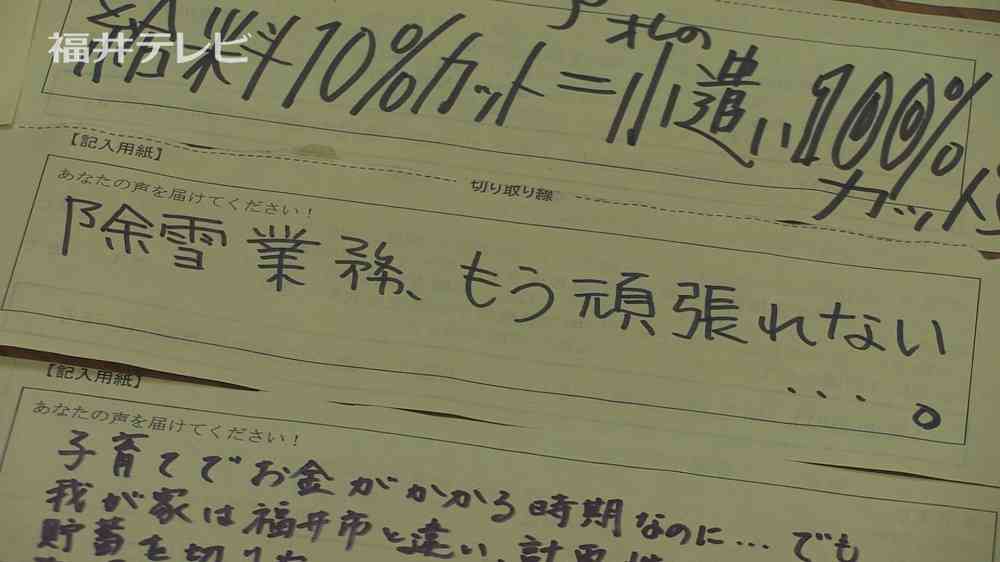 福井テレビ
オレの
給料10%カット=小遣い100%
カット
【記入用紙】
切り取り線
あなたの声を届けてください！
除雪業務、もう頑張れない
…。
【記入用紙】
あなたの声を届けてください！
子育てでお金がかかる時期なのに…でも
我が家は福井市と違い、計画
貯蓄を切り